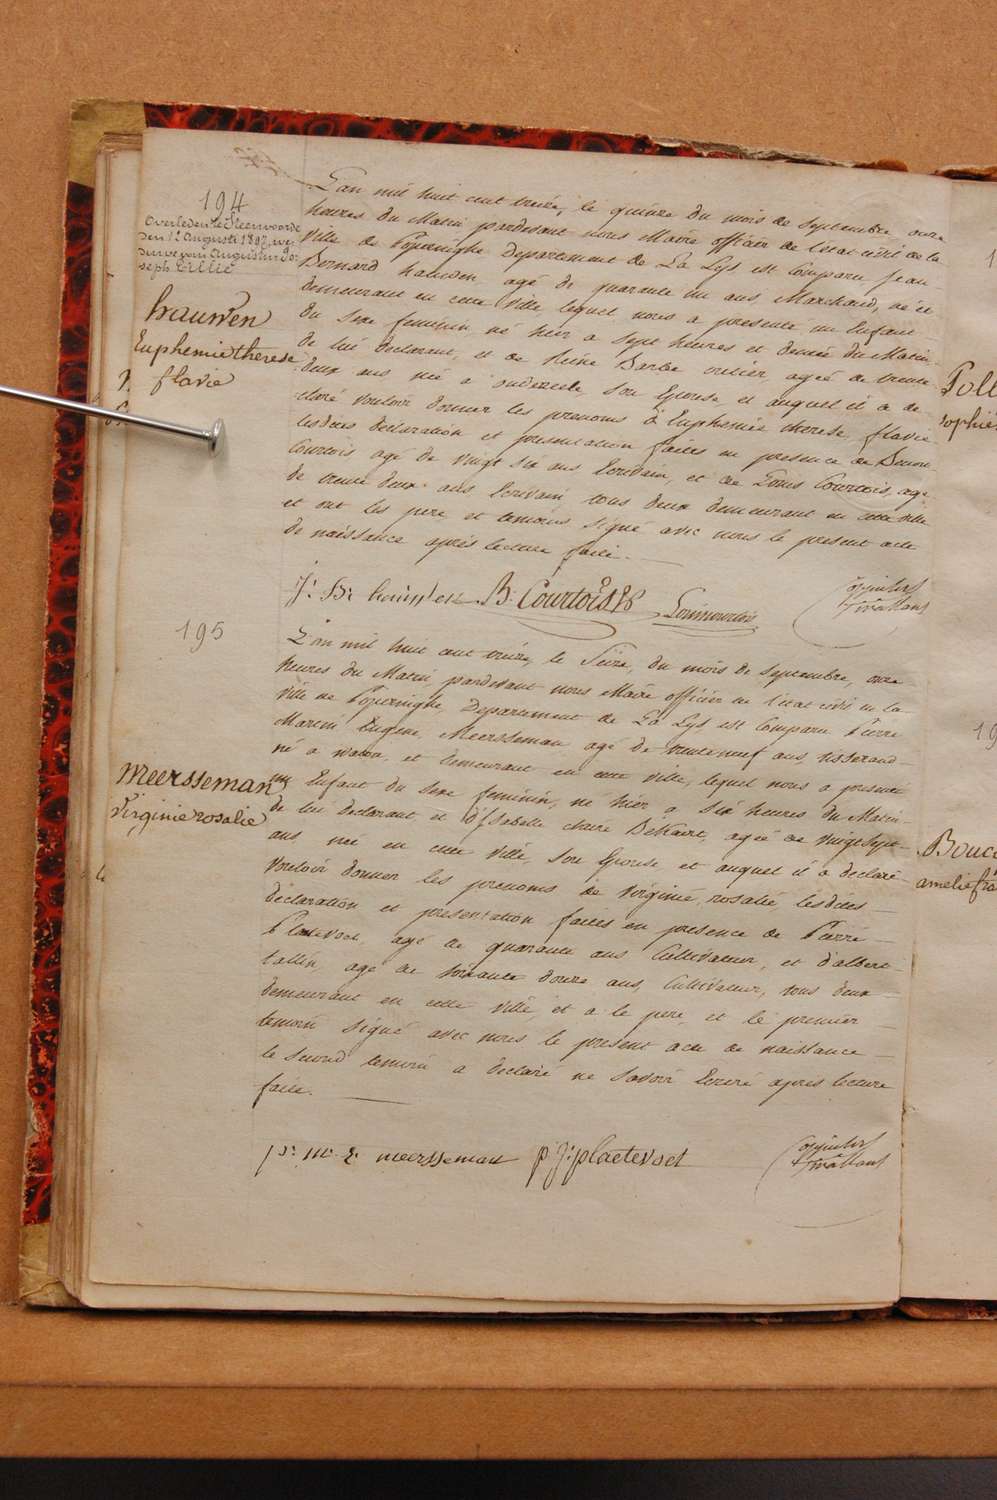 194
Overleden te Steenvoorde
den 12 Augusti 1897, we
duwe van Augustin Jo
seph Lillie
hauw'en
Euphemie therese
flavie
L'an mil huit cent treize, le quinze du mois de Septembre, onze
heures du Matin pardevant nous Maire officier de l'état civil de la
Ville de Poperinghe Departement de La Lys est Comparu Jean
Bernard hauwen agé de quarante un ans Marchand, né et
demeurant en cette Ville lequel nous a presenté un Enfant
du Sexe feminin né hier a Sept heures et demée du Matin
de lui declarant, et de Reine Barbe agée de trente
deux ans née a Son Epouse et auquel il a de
claré vouloir donner les prenoms d'Euphemie therese, flavie
lesdites declaration et presentation faites en presence de
Courtois agé de vingt six ans Ecrivain, et de Louis Courtois, agé
de trente deux ans Ecrivain tous deux demeurant en cette ville
et ont les pere et temoins Signé avec nous le present acte
de naissance après lecture faite.
J: Be hauwen B: Courtois Louis courtois
195
Meersseman
Virginie rosalie
L'an mil huit cent treize, le Seize, du mois de Septembre, onze
heures du Matin, pardevant nous Maire officier de l'état civil de la
Ville de Poperinghe, Departement de La Lys est Comparu Pierre
Martin Eugene, Meersseman agé de trente neuf ans, tisserand
né a watou, et demeurant en cette ville, lequel nous a presenté
un Enfant du Sexe feminin, né hier a Six heures du Matin
de lui declarant et d'Isabelle claire agée de vingt Sept
ans, née en cette ville, Son Epouse, et auquel il a declaré
vouloir donner les prenoms de Virginie, rosalie, lesdites
declaration et presentation faites en presence de Pierre
Plaetevoet, agé de quarante ans Cultivateur, et d'albert
tallin, agé de Soixante douze ans, Cultivateur, tous deux
demeurant en cette ville, et a le pere, et le premier
temoin Signé avec nous le present acte de naissance
le Second temoin a declaré ne Savoir Ecrire apres lecture
faite.
pr: m: E: meersseman p: J: plaetevoet